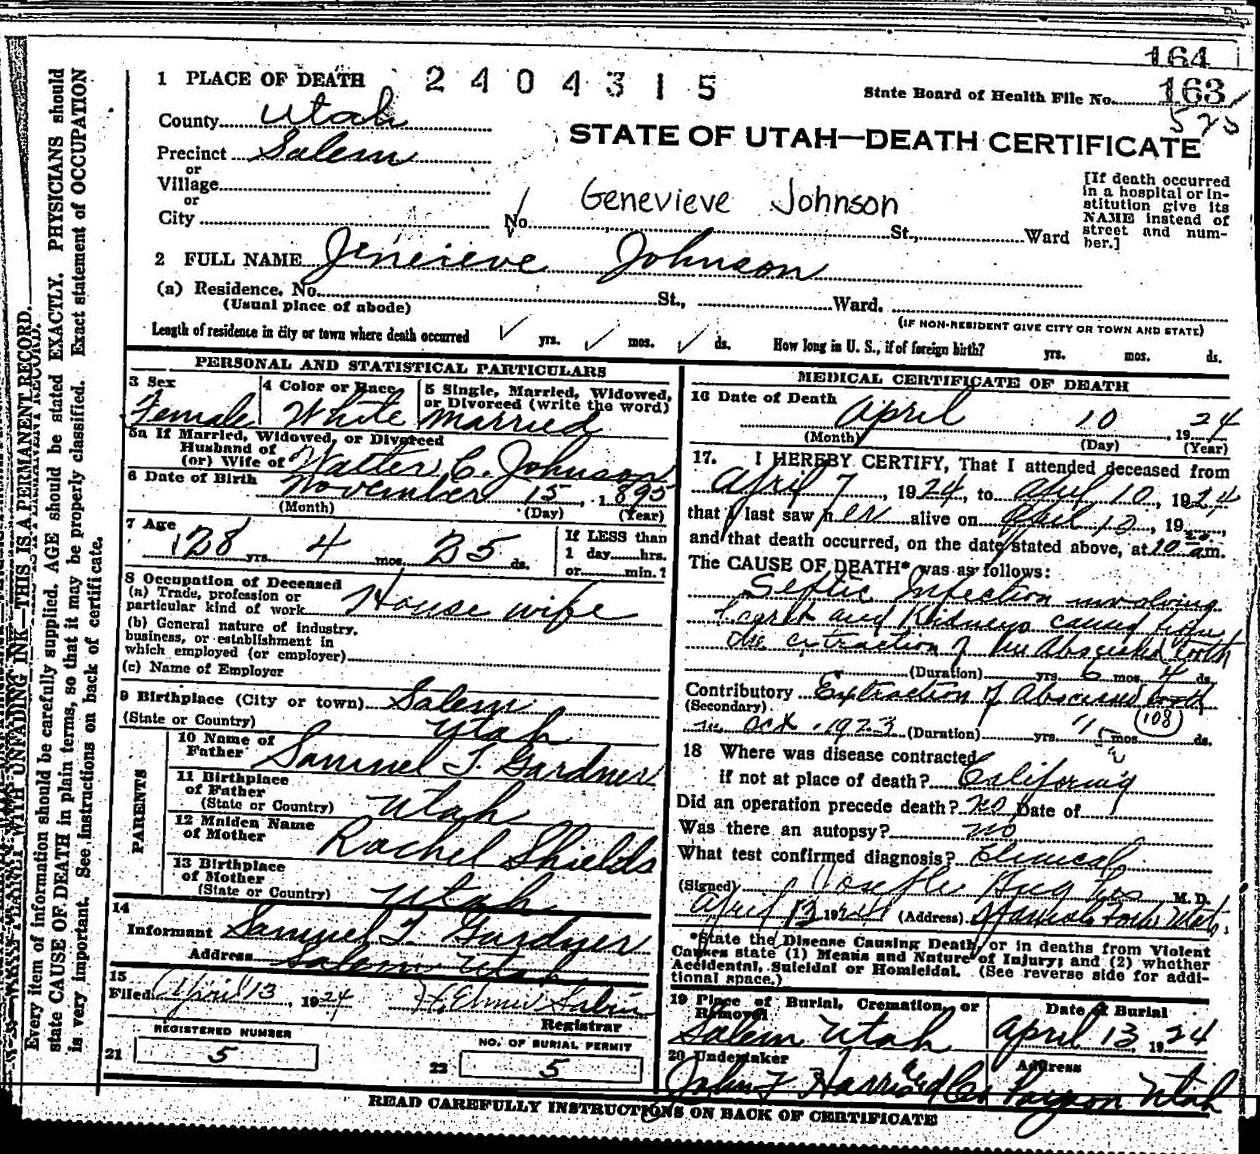 164
1 PLACE OF DEATH 2404315
State Board of Health File No. 163
525
County Utah
STATE OF UTAH—DEATH CERTIFICATE
Precinct Salem
or
Village
or
City
No. St., Ward
Genevieve Johnson
[If death occurred
in a hospital or in-
stitution give its
NAME instead of
street and num-
ber.]
2 FULL NAME Jenevieve Johnson
(a) Residence. No. St., Ward.
(Usual place of abode)
(IF NON-RESIDENT GIVE CITY OR TOWN AND STATE)
Length of residence in city or town where death occurred ✓ yrs. ✓ mos. ✓ ds. How long in U. S., if of foreign birth? yrs. mos. ds.
PERSONAL AND STATISTICAL PARTICULARS
3 Sex
Female
4 Color or Race
White
5 Single, Married, Widowed,
or Divorced (write the word)
Married
5a If Married, Widowed, or Divorced
Husband of
(or) Wife of Walter C. Johnson
6 Date of Birth November 15, 1895
(Month) (Day) (Year)
7 Age
28 yrs. 4 mos. 25 ds.
If LESS than
1 day hrs.
or min.?
8 Occupation of Deceased
(a) Trade, profession or
particular kind of work House wife
(b) General nature of industry,
business, or establishment in
which employed (or employer)
(c) Name of Employer
9 Birthplace (City or town) Salem
(State or Country) Utah
PARENTS
10 Name of
Father Samuel T. Gardner
11 Birthplace
of Father
(State or Country) Utah
12 Maiden Name
of Mother Rachel Shields
13 Birthplace
of Mother
(State or Country) Utah
14
Informant Samuel T. Gardner
Address Salem Utah
15
Filed April 13, 1924 H. Elmer
Registrar
REGISTERED NUMBER
21 5
NO. OF BURIAL PERMIT
22 5
MEDICAL CERTIFICATE OF DEATH
16 Date of Death
April 10, 1924
(Month) (Day) (Year)
17. I HEREBY CERTIFY, That I attended deceased from
April 7, 1924, to April 10, 1924
that I last saw her alive on April 10, 19
and that death occurred, on the date stated above, at 10 am.
The CAUSE OF DEATH* was as follows:
Septic Infection involving
heart and Kidneys caused from
the extraction of an Abscessed tooth
(Duration) yrs. 6 mos. 4 ds.
Contributory Extraction of Abscessed tooth
(Secondary)
in Oct. 1923 (Duration) yrs. mos. ds.
(108)
18 Where was disease contracted
if not at place of death? California
Did an operation precede death? no Date of
Was there an autopsy? no
What test confirmed diagnosis? Clinical
(Signed) Hughes M. D.
April 13 1924 (Address) Spanish Fork Utah.
*State the Disease Causing Death, or in deaths from Violent
Causes state (1) Means and Nature of Injury; and (2) whether
Accidental, Suicidal or Homicidal. (See reverse side for addi-
tional space.)
19 Place of Burial, Cremation, or
Removal
Salem Utah
Date of Burial
April 13, 1924
20 Undertaker
John F Harris
Address
Payson Utah
READ CAREFULLY INSTRUCTIONS ON BACK OF CERTIFICATE
WRITE PLAINLY WITH UNFADING INK—THIS IS A PERMANENT RECORD.
Every item of information should be carefully supplied. AGE should be stated EXACTLY. PHYSICIANS should
state CAUSE OF DEATH in plain terms, so that it may be properly classified. Exact statement of OCCUPATION
is very important. See instructions on back of certificate.